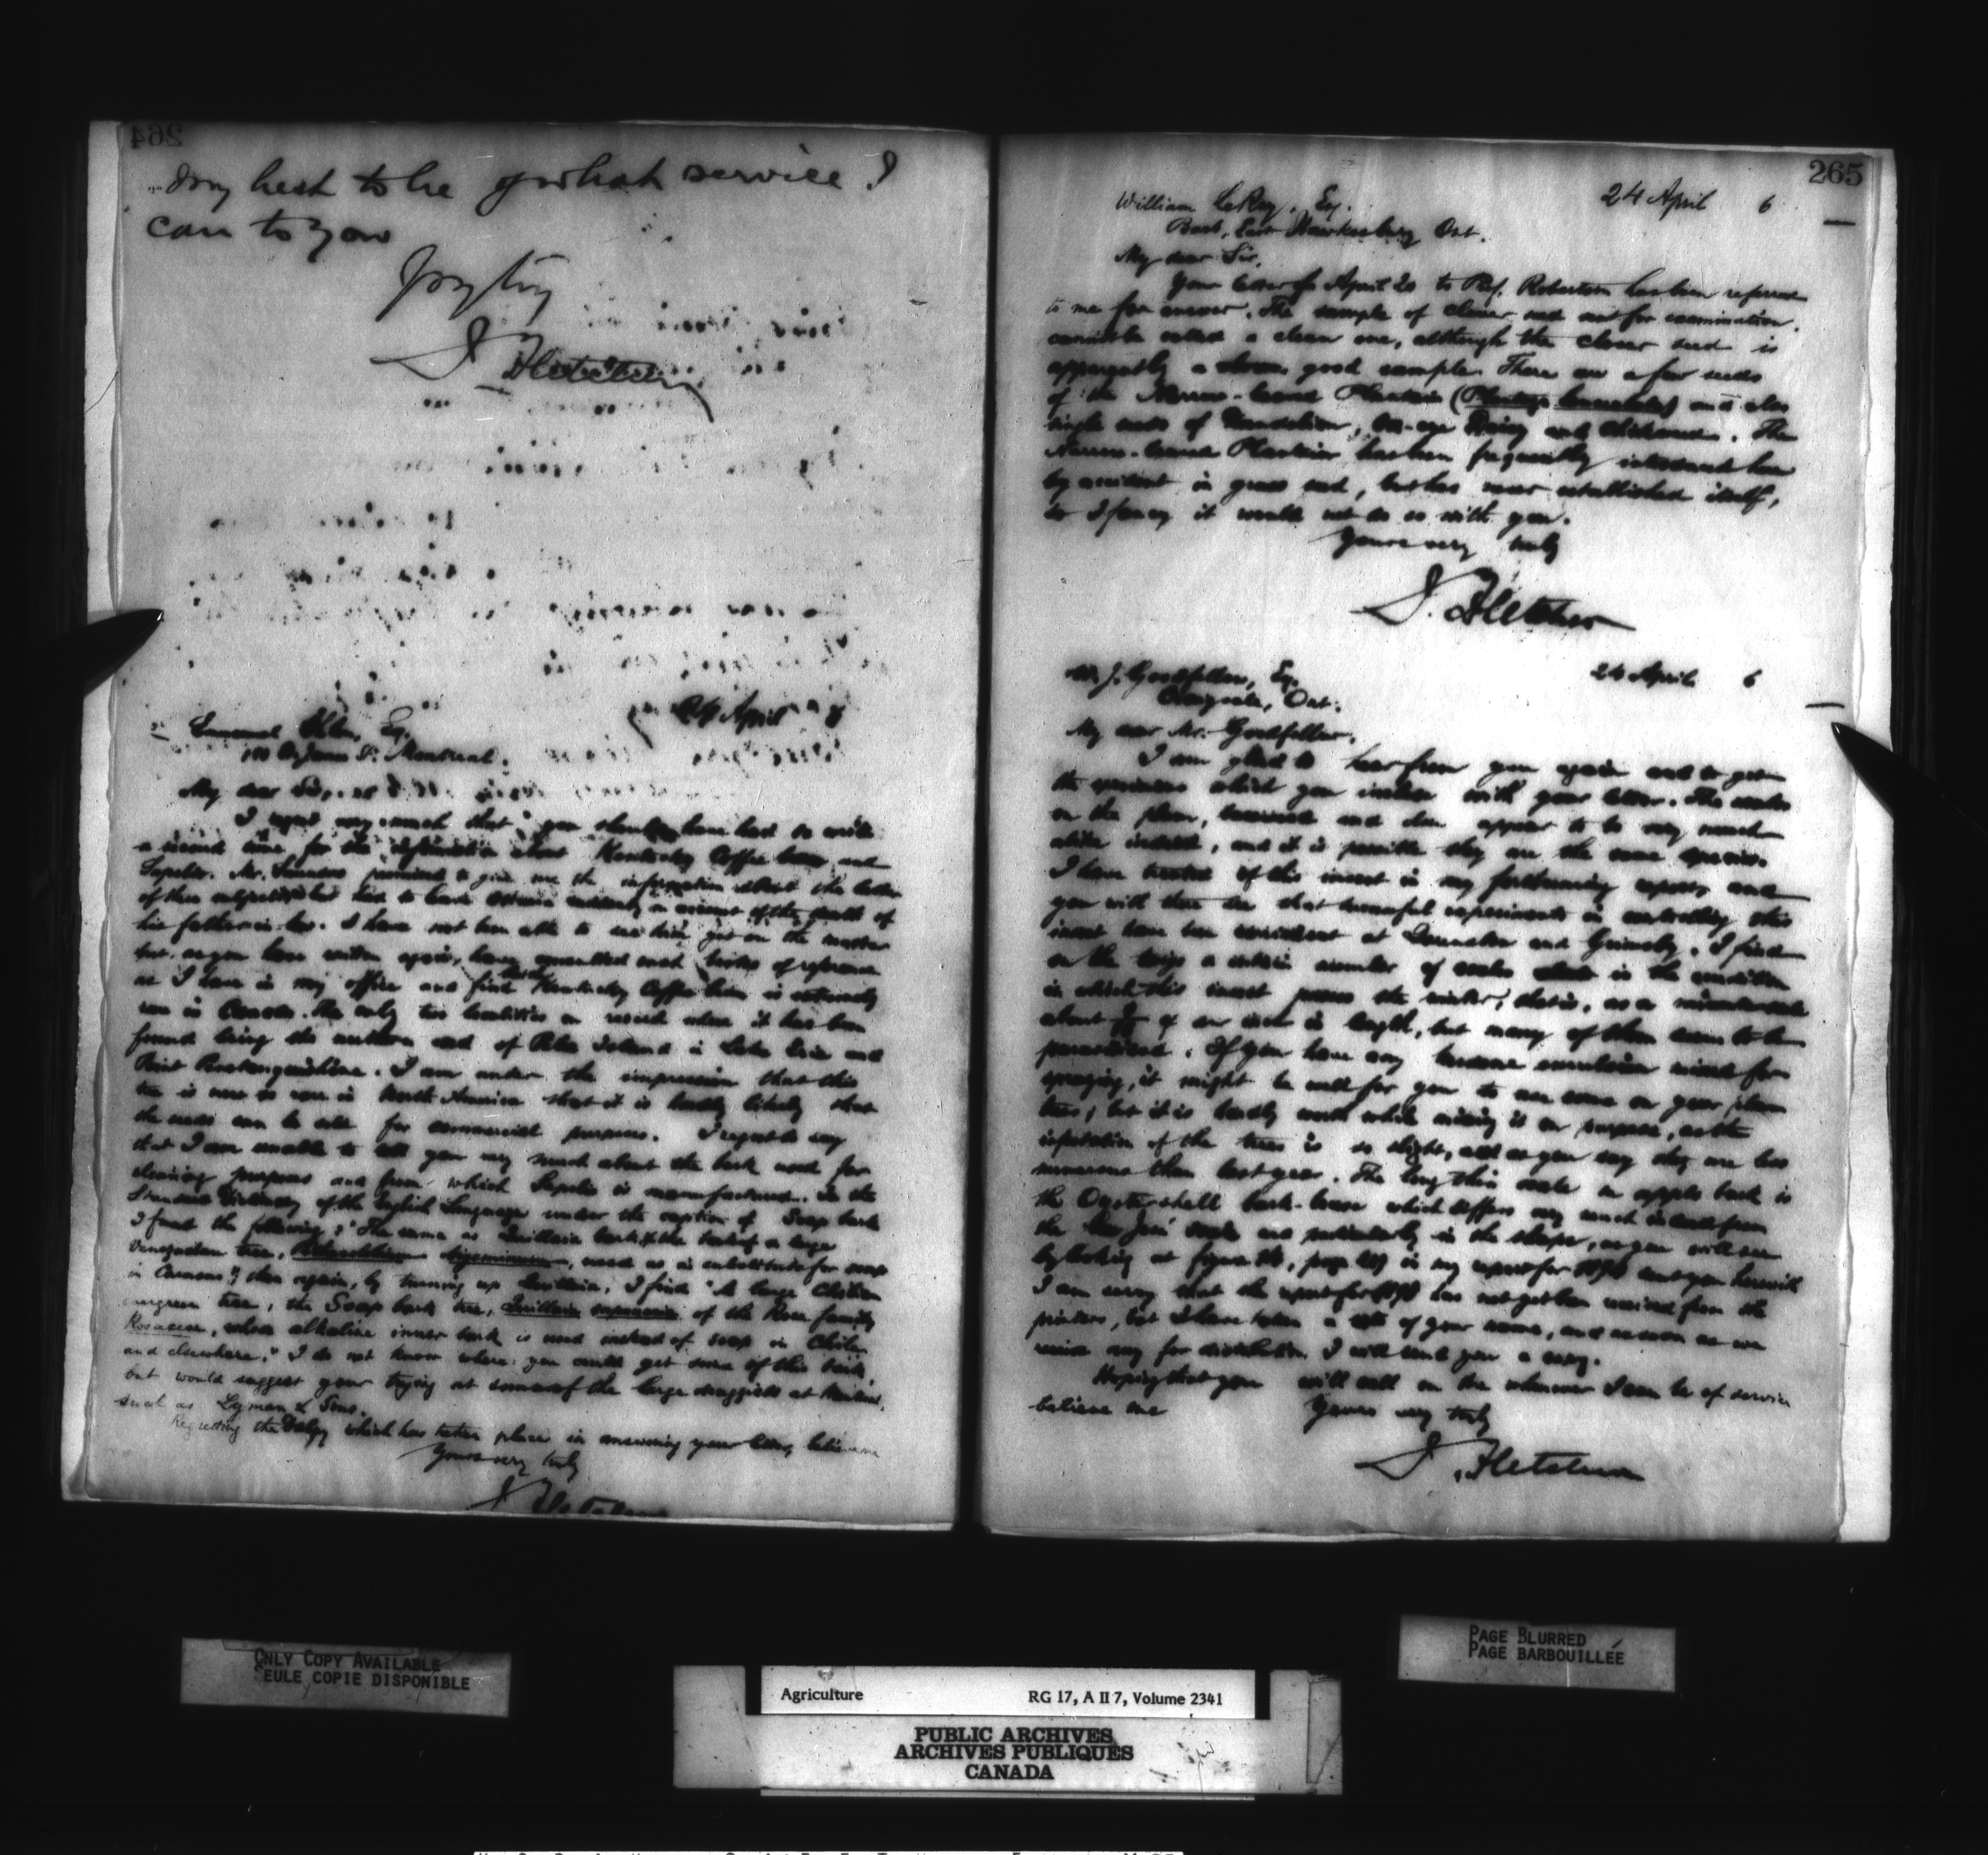 264
my best to be of what service I
can to you
J. Fletcher
24 April
Esq.
St. Montreal.
My dear Sir,
I regret very much that you should have had to write
a second time for the information about Kentucky Coffee bean and
Mr. promised to give me the information about the latter
of these but had to leave on account of the death of
his father-in-law. I have not been able to see him yet on the matter
but, as you have written again, have consulted such works of reference
as I have in my office and find that the Kentucky Coffee bean is extremely
rare in Canada. The only two localities on record where it has been
found being the southern end of Pelee Island in Lake Erie and
Point I am under the impression that this
tree is now so rare in North America that it is hardly likely that
the seeds can be used for commercial purposes. I regret to say
that I am unable to tell you very much about the bark used for
cleaning purposes and from which is manufactured. In the
Standard Dictionary of the English Language under the caption of Soap bark
I find the following: "The same as Quillaia bark; the bark of a large
Venezuelan tree, used as a substitute for soap
in Caracas"; then again, by turning up Quillaia, I find "A large Chilian
evergreen tree, the Soap bark tree, Quillaia saponaria of the Rose family
Rosaceae, whose alkaline inner bark is used instead of soap in Chile
and elsewhere." I do not know where you could get some of this bark,
but would suggest your trying at some of the large druggists at Montreal,
such as Lyman & Sons.
Regretting the delay which has taken place in answering your letter, believe me
Yours very truly
J. Fletcher
265
24 April 6
William LeRoy, Esq.
East Hawkesbury Ont.
My dear Sir,
Your letter of April 20 to Prof. Robertson has been referred
to me for answer. The sample of clover seed sent for examination
cannot be called a clean one, although the clover seed is
apparently a good sample. There are a few seeds
of the Narrow-leaved Plantain (Plantago lanceolata) and also
single seeds of Dandelion, Ox-eye Daisy and Chickweed. The
Narrow-leaved Plantain has been frequently introduced here
by accident in grass seed, but has never established itself,
so I fancy it would not do so with you.
Yours very truly
J. Fletcher
24 April 6
W. J. Goodfellow, Esq.
Craigvale, Ont.
My dear Mr. Goodfellow,
I am glad to hear from you again and to get
the specimens which you enclose with your letter. The scales
on the plum, and appear to be very much
alike indeed, and it is possible they are the same species.
I have treated of this insect in my forthcoming report, and
you will then see that successful experiments in controlling this
insect have been at and Grimsby. I find
on the twigs a certain number of scales in the condition
in which this insect passes the winter, that is, as a
about of an inch in length, but many of them seem to be
parasitised. If you have any kerosene emulsion mixed for
spraying, it might be well for you to use some on your plum
trees, but it is hardly worth while mixing it on purpose, as the
infestation of the trees is so slight, and as you say they are less
numerous than last year. The long thin scale on apple bark is
the Oyster-shell bark-louse which differs very much indeed from
the San José scale and particularly in the shape, as you will see
by looking at figure page in my report for sent you herewith
I am sorry that the report for has not yet been received from the
printers, but I have taken a note of your name, and as soon as we
receive any for distribution I will send you a copy.
Hoping that you will call on me whenever I can be of service
believe me Yours very truly
J. Fletcher
ONLY COPY AVAILABLE
SEULE COPIE DISPONIBLE
PAGE BLURRED
PAGE BARBOUILLÉE
Agriculture RG 17, A II 7, Volume 2341
PUBLIC ARCHIVES
ARCHIVES PUBLIQUES
CANADA